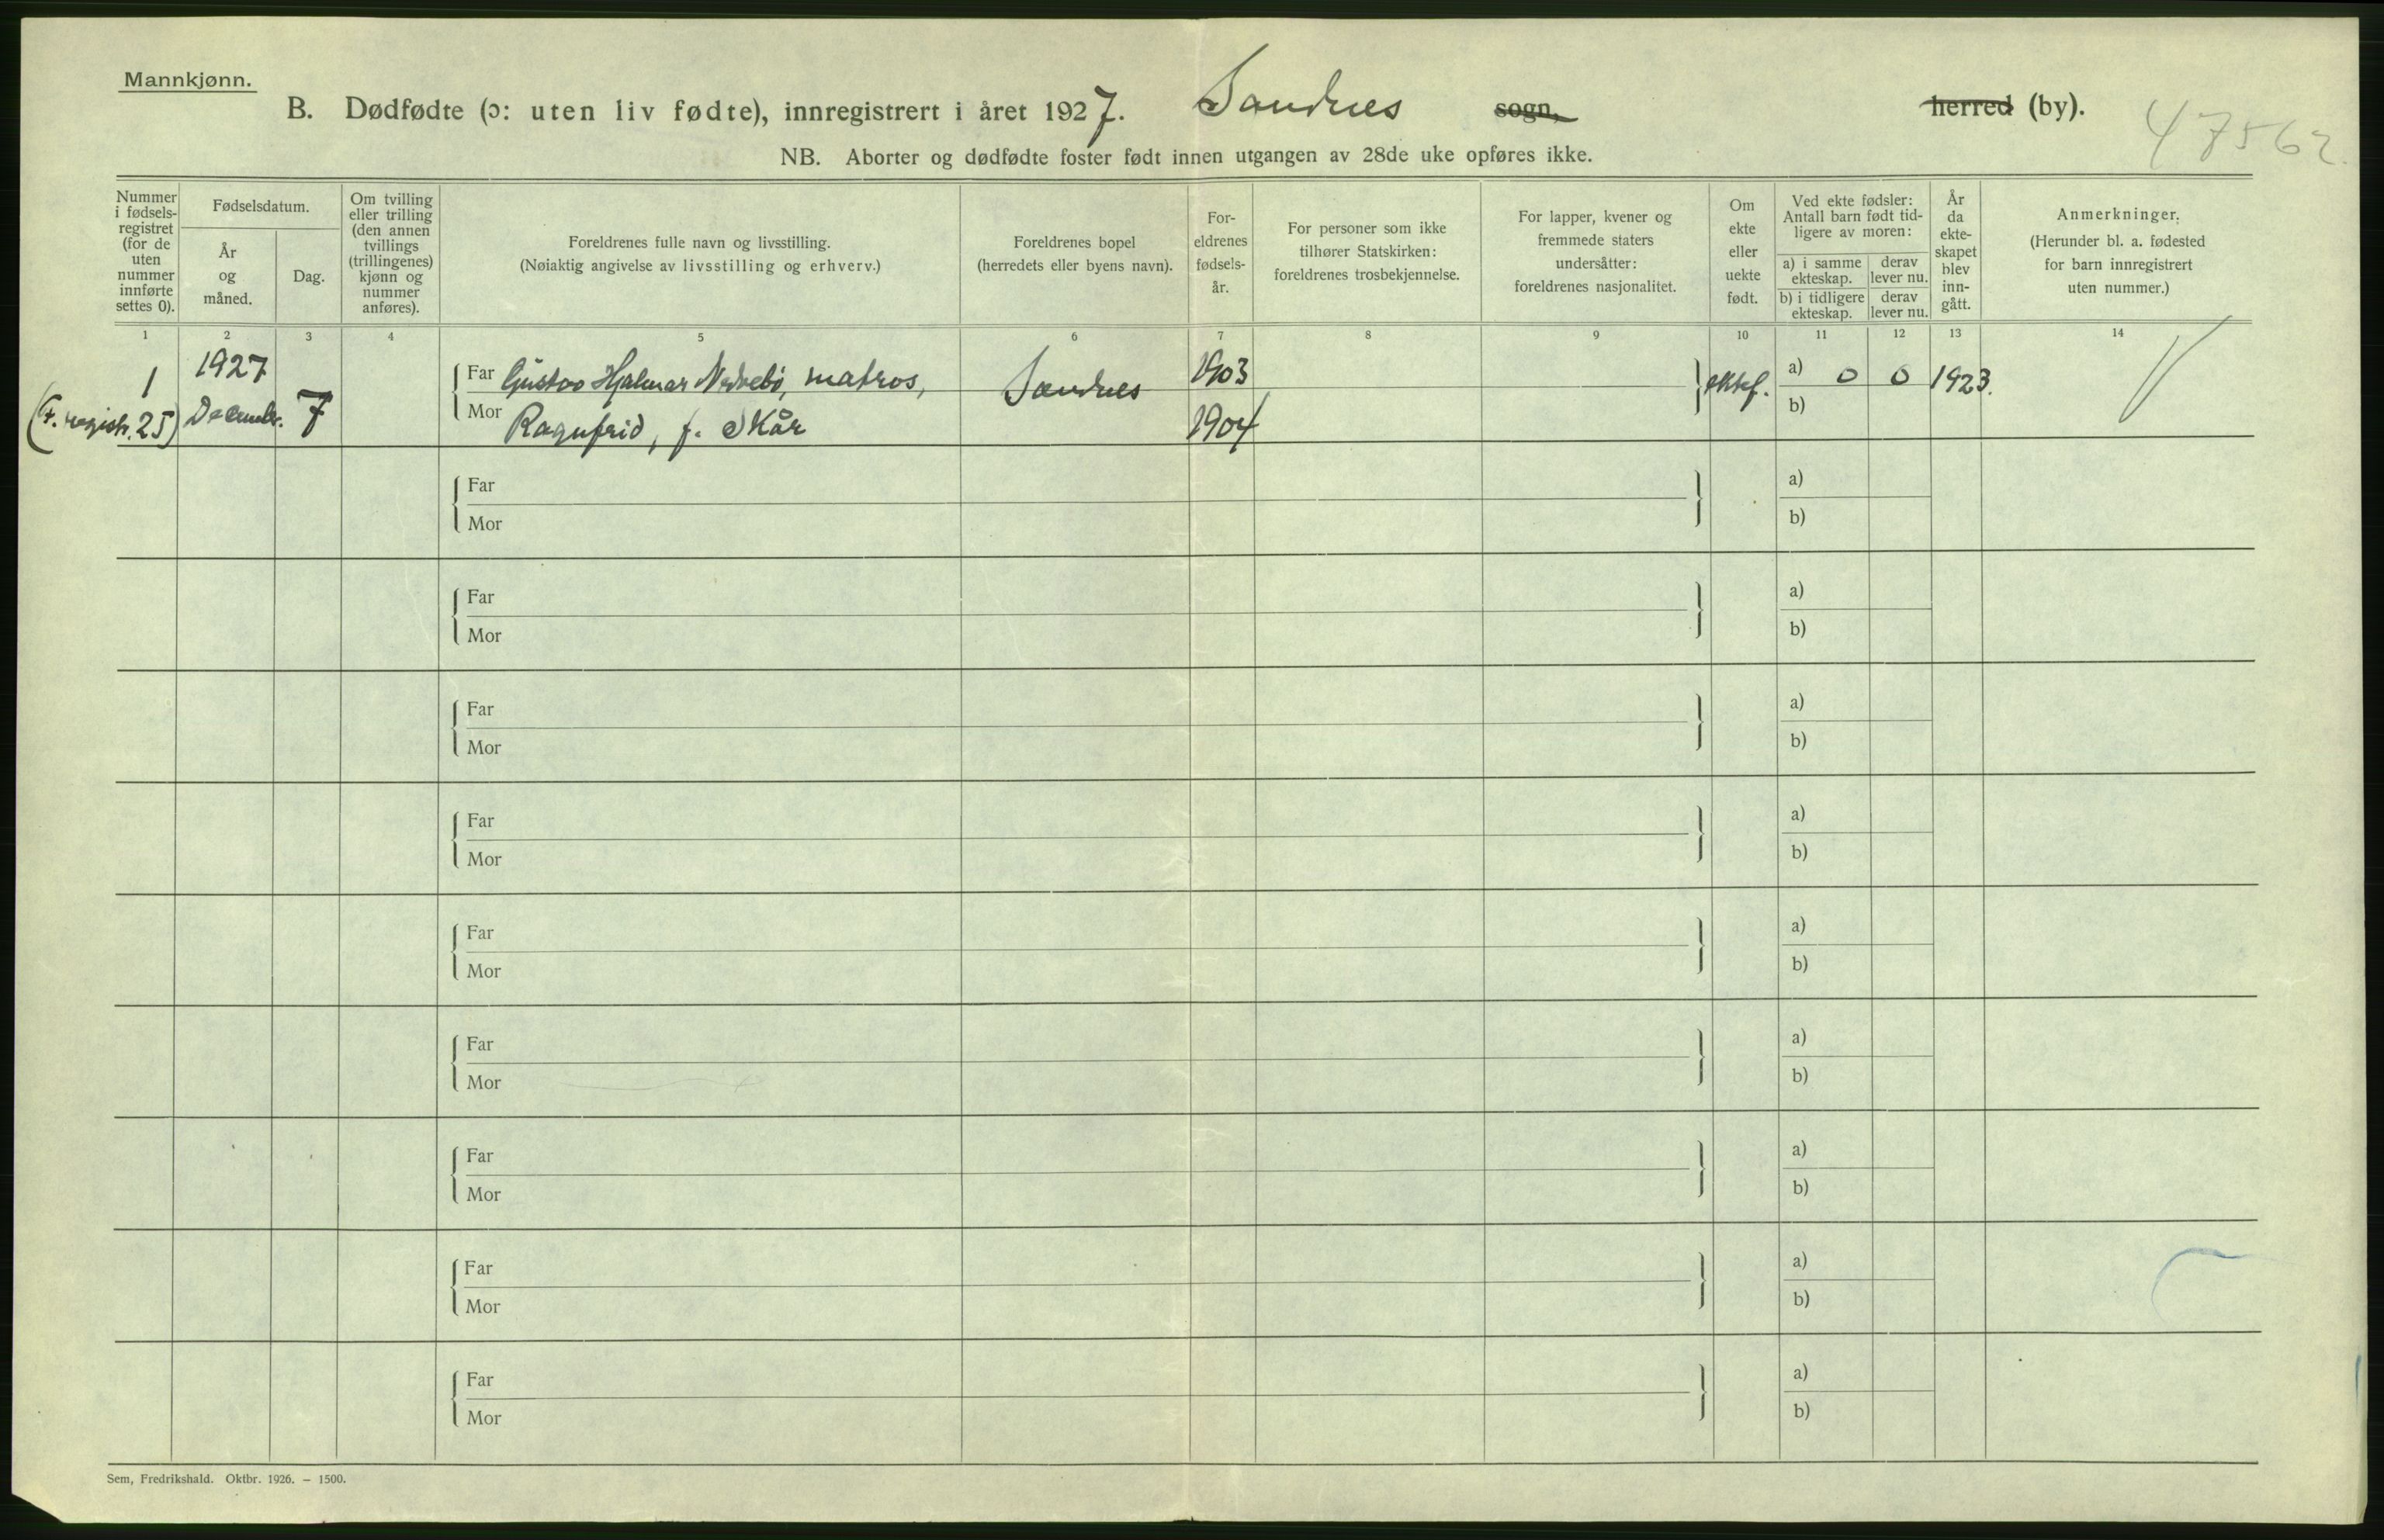 Mannkjønn.
B. Dødfødte (ɔ: uten liv fødte), innregistrert i året 1927. Sandnes sogn, herred (by).
47562.
NB. Aborter og dødfødte foster født innen utgangen av 28de uke opføres ikke.
Nummer i fødsels-registret (for de uten nummer innførte settes 0).
Fødselsdatum.
År og måned.
Dag.
Om tvilling eller trilling (den annen tvillings (trillingenes) kjønn og nummer anføres).
Foreldrenes fulle navn og livsstilling.
(Nøiaktig angivelse av livsstilling og erhverv.)
Foreldrenes bopel
(herredets eller byens navn).
For-eldrenes fødsels-år.
For personer som ikke tilhører Statskirken: foreldrenes trosbekjennelse.
For lapper, kvener og fremmede staters undersåtter: foreldrenes nasjonalitet.
Om ekte eller uekte født.
Ved ekte fødsler: Antall barn født tid-ligere av moren:
a) i samme ekteskap.
derav lever nu.
b) i tidligere ekteskap.
derav lever nu.
År da ekte-skapet blev inn-gått.
Anmerkninger.
(Herunder bl. a. fødested for barn innregistrert uten nummer.)
1 2 3 4 5 6 7 8 9 10 11 12 13 14
1 1927 Far Gustav Hjalmar Nedrebö, matros, Sandnes 1903 ektef. a) 0 0 1923.
(F. registr. 25) December. 7 Mor Ragnfrid, f. Skår 1904 b)
Far a)
Mor b)
Far a)
Mor b)
Far a)
Mor b)
Far a)
Mor b)
Far a)
Mor b)
Far a)
Mor b)
Far a)
Mor b)
Far a)
Mor b)
Far a)
Mor b)
Sem, Fredrikshald. Oktbr. 1926. – 1500.